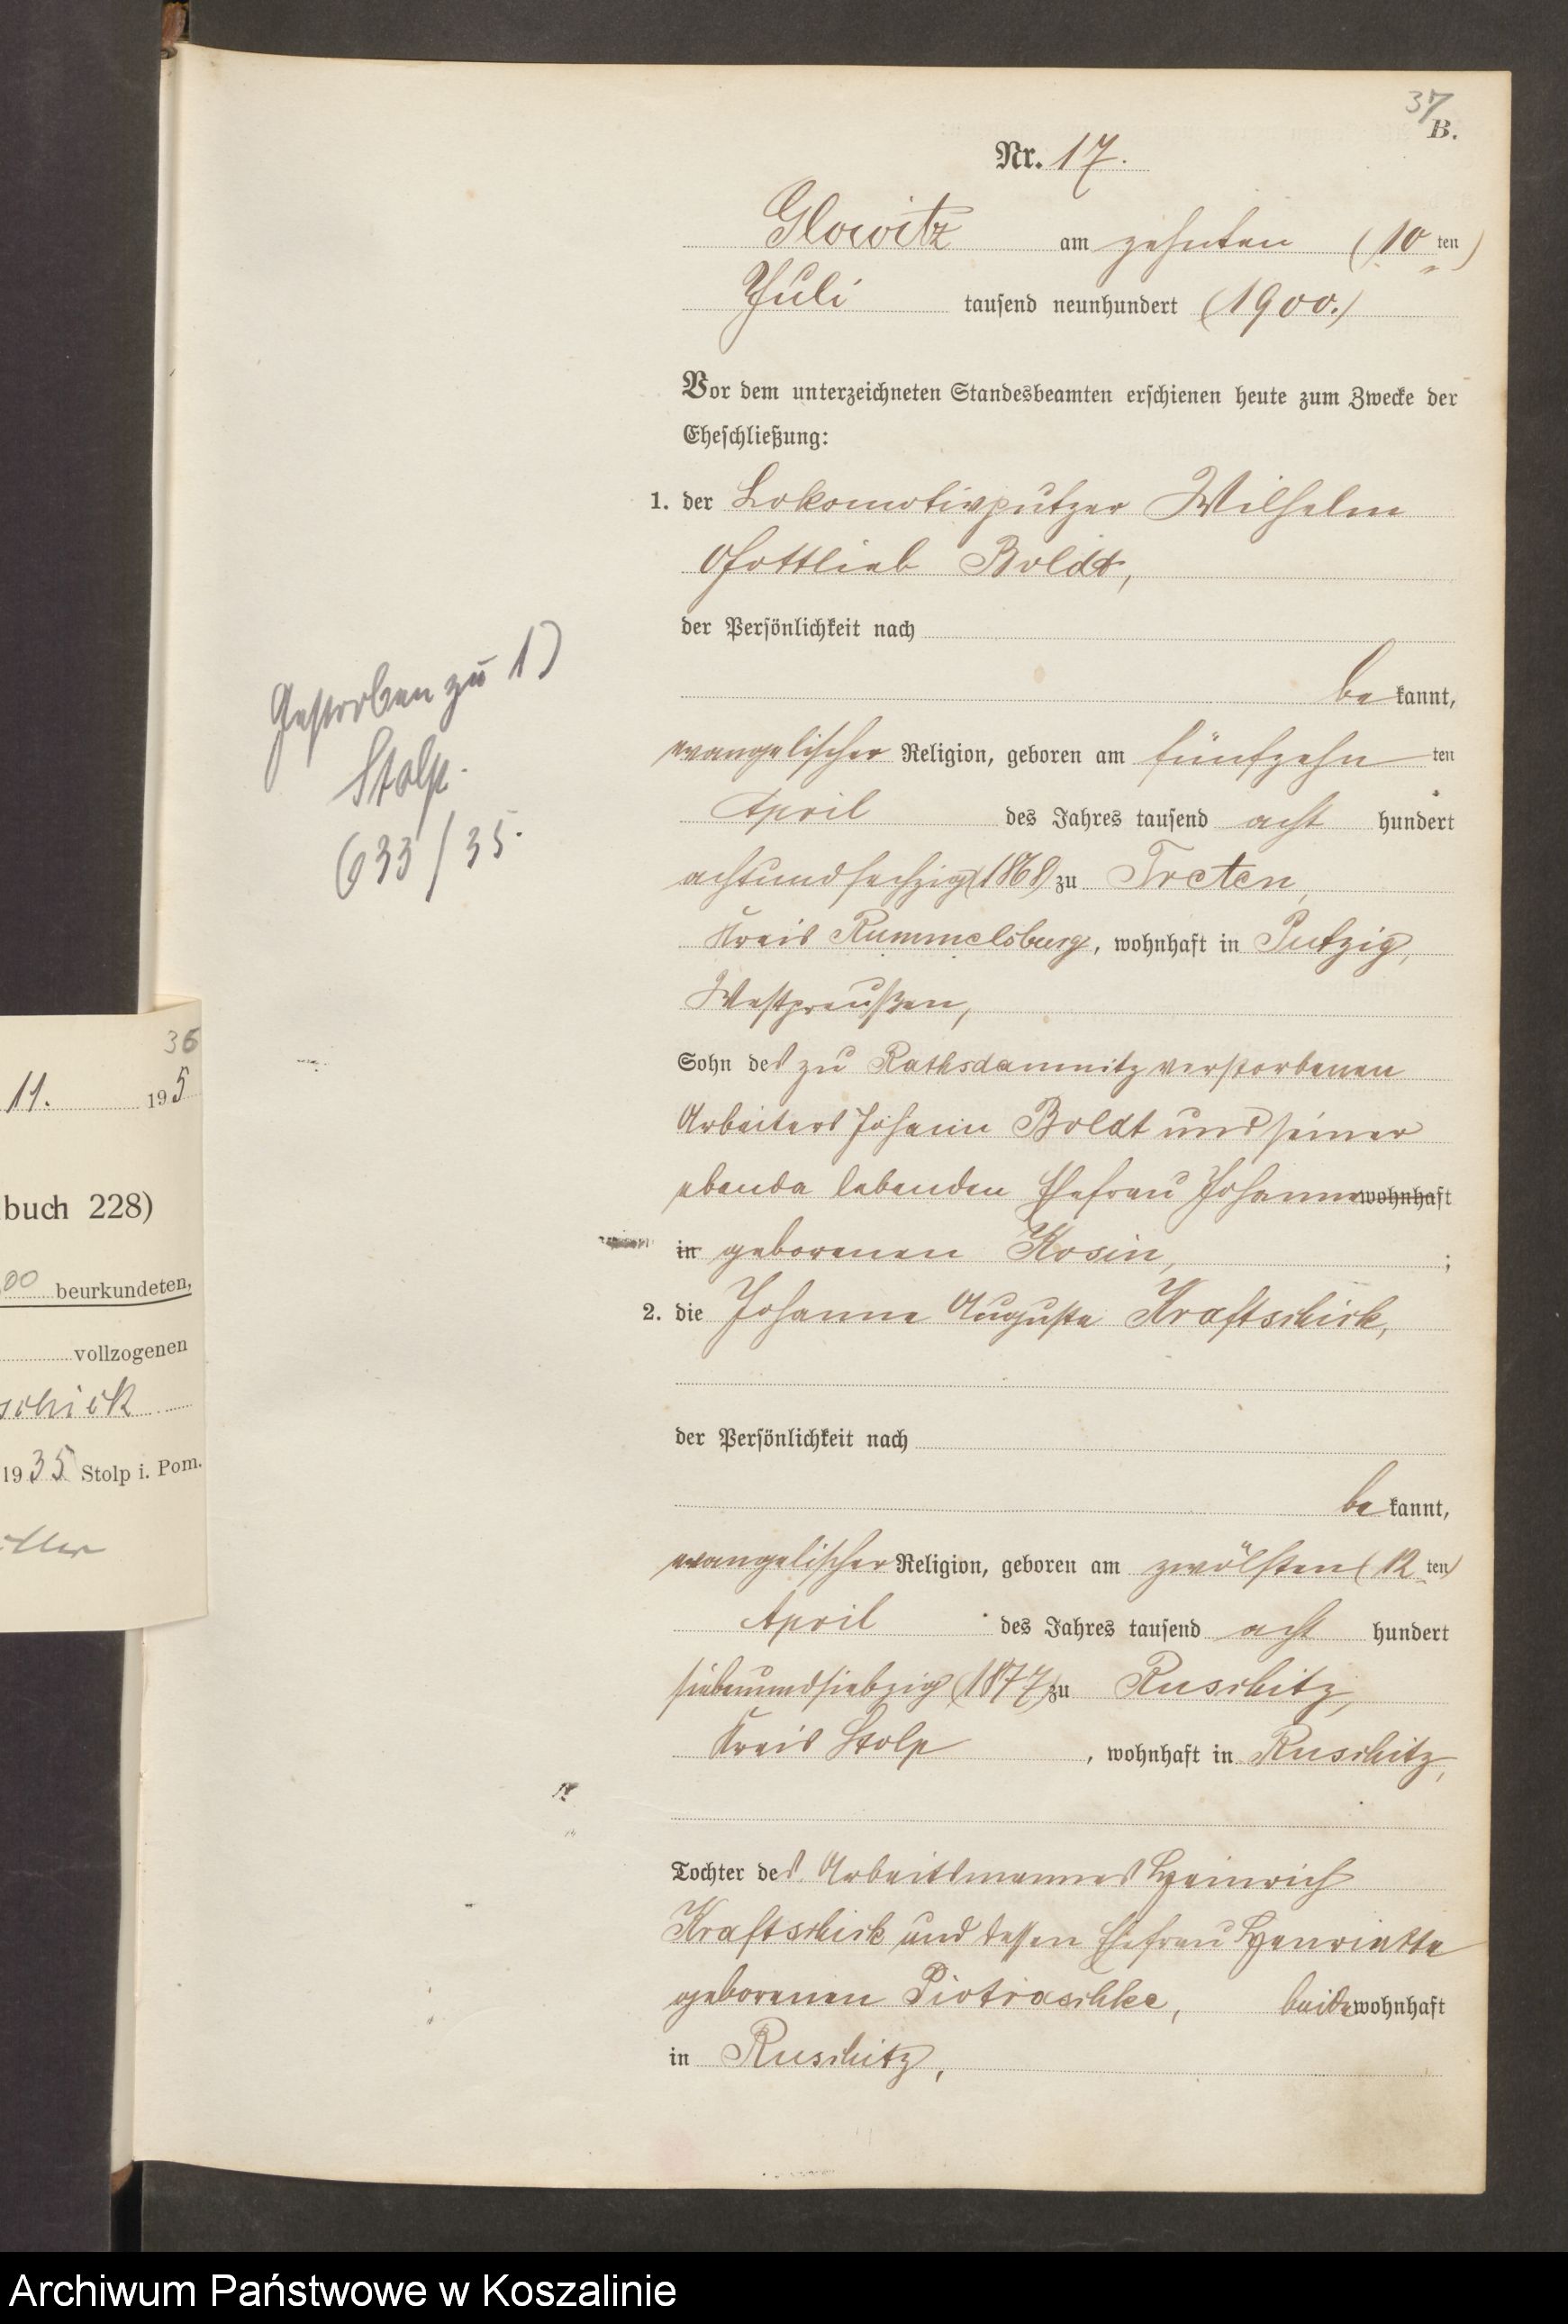 37
B.
Nr. 17.
Glowitz am zehnten (10 ten)
Juli tausend neunhundert (1900.)
Vor dem unterzeichneten Standesbeamten erschienen heute zum Zwecke der
Eheschließung:
1. der Lokomotivputzer Wilhelm
Gottlieb Boldt,
der Persönlichkeit nach
be kannt,
evangelischer Religion, geboren am fünfzehn ten
April des Jahres tausend acht hundert
achtundsechzig (1868) zu Treten,
Kreis Rummelsburg, wohnhaft in Putzig,
Westpreußen,
Sohn des zu Rathsdamnitz verstorbenen
Arbeiters Johann Boldt und seiner
ebenda lebenden Ehefrau Johanne wohnhaft
in geborenen Kosin, ;
2. die Johanne Auguste Kraftschick,
der Persönlichkeit nach
be kannt,
evangelischer Religion, geboren am zwölften (12 ten)
April des Jahres tausend acht hundert
siebenundsiebzig (1877) zu Ruschitz,
Kreis Stolp, wohnhaft in Ruschitz,
Tochter des Arbeitsmannes Heinrich
Kraftschick und dessen Ehefrau Henriette
geborenen Piotraschke, beide wohnhaft
in Ruschitz,
Gestorben zu 1)
Stolp.
633/35.
36
11. 195
buch 228)
00 beurkundeten,
vollzogenen
schick
1935 Stolp i. Pom.
Archiwum Państwowe w Koszalinie